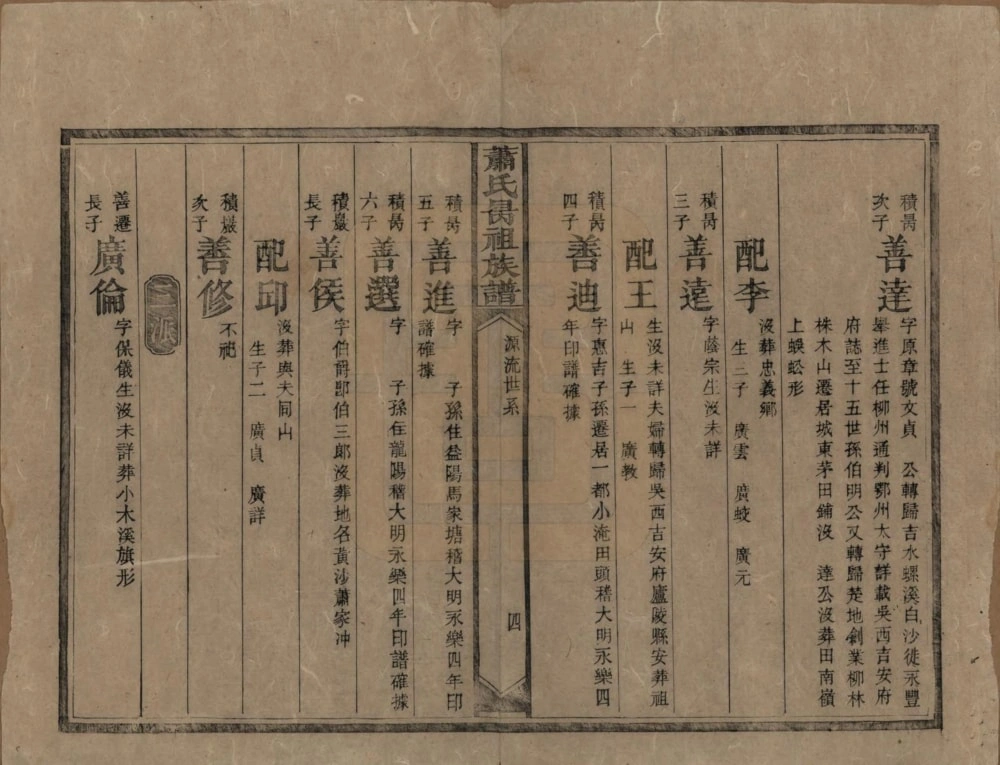 積勗
次子
善達
字原章號文貞　公轉歸吉水螺溪白沙徙永豐
舉進士任柳州通判鄂州太守詳載吳西吉安府
府誌至十五世孫伯明公又轉歸楚地創業柳林
株木山遷居城東茅田鋪沒　達公沒葬田南嶺
上蜈蚣形
配李
沒葬忠義鄉
生三子　廣雲　廣蛟　廣元
積勗
三子
善遠
字蔭宗生沒未詳
配王
生沒未詳夫婦轉歸吳西吉安府廬陵縣安葬祖
山　生子一　廣教
積勗
四子
善迪
字惠吉子孫遷居一都小淹田頭稽大明永樂四
年印譜確據
蕭氏勗祖族譜
源流世系
四
積勗
五子
善進
字　子孫住益陽馬家塘稽大明永樂四年印
譜確據
積勗
六子
善選
字　子孫住龍陽稽大明永樂四年印譜確據
積巖
長子
善侯
字伯爵即伯三郎沒葬地名黃沙蕭家冲
配邱
沒葬與夫同山
生子二　廣貞　廣詳
積巖
次子
善修
不祀
三派
善遷
長子
廣倫
字保儀生沒未詳葬小木溪旗形